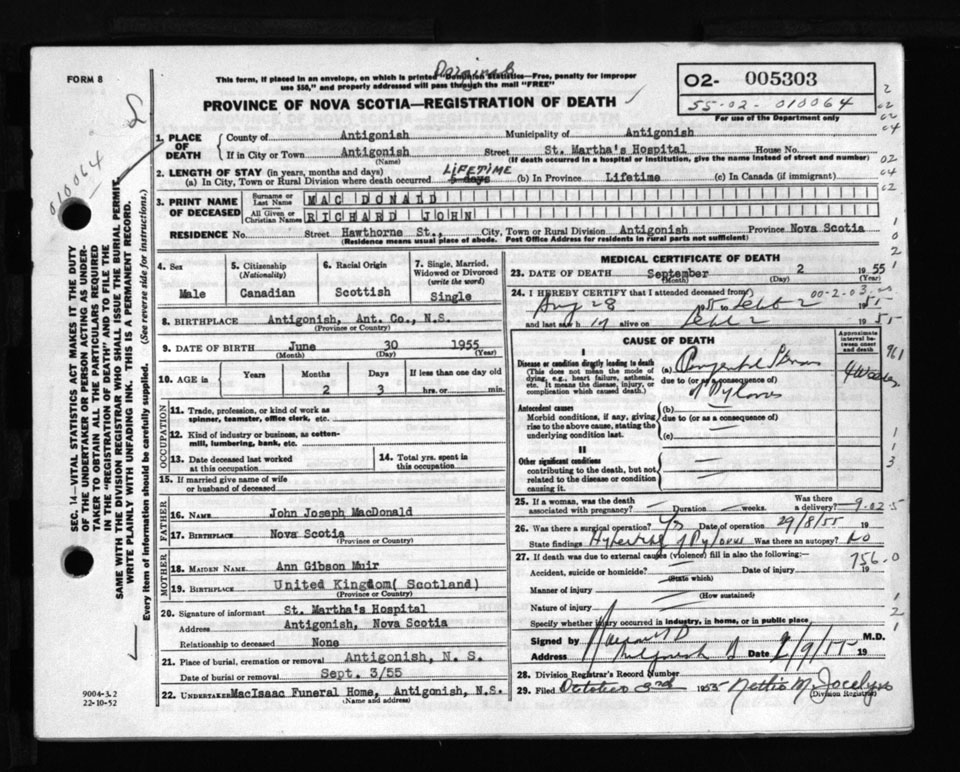 FORM 8
Marginal
This form, if placed in an envelope, on which is printed Dominion Statistics—Free, penalty for improper
use $50," and properly addressed will pass through the mail "FREE"
PROVINCE OF NOVA SCOTIA—REGISTRATION OF DEATH
O2- 005303
55-02-010064
For use of the Department only
010064
1. PLACE OF DEATH
County of Antigonish Municipality of Antigonish
If in City or Town Antigonish Street St. Martha's Hospital House No.
(Name) (If death occurred in a hospital or institution, give the name instead of street and number)
2. LENGTH OF STAY (in years, months and days)
(a) In City, Town or Rural Division where death occurred LIFETIME 5 days (b) In Province Lifetime (c) In Canada (if immigrant)
3. PRINT NAME OF DECEASED
Surname or Last Name MAC DONALD
All Given or Christian Names RICHARD JOHN
RESIDENCE No. Street Hawthorne St., City, Town or Rural Division Antigonish Province Nova Scotia
(Residence means usual place of abode. Post Office Address for residents in rural parts not sufficient)
4. Sex Male
5. Citizenship (Nationality) Canadian
6. Racial Origin Scottish
7. Single, Married, Widowed or Divorced (write the word) Single
8. BIRTHPLACE Antigonish, Ant. Co., N.S.
(Province or Country)
9. DATE OF BIRTH June 30 1955
(Month) (Day) (Year)
10. AGE in Years Months 2 Days 3 If less than one day old hrs. or min.
OCCUPATION
11. Trade, profession, or kind of work as spinner, teamster, office clerk, etc.
12. Kind of industry or business, as cotton-mill, lumbering, bank, etc.
13. Date deceased last worked at this occupation
14. Total yrs. spent in this occupation
15. If married give name of wife or husband of deceased
FATHER
16. NAME John Joseph MacDonald
17. BIRTHPLACE Nova Scotia
(Province or Country)
MOTHER
18. MAIDEN NAME Ann Gibson Muir
19. BIRTHPLACE United Kingdom( Scotland)
(Province or Country)
20. Signature of informant St. Martha's Hospital
Address Antigonish, Nova Scotia
Relationship to deceased None
21. Place of burial, cremation or removal Antigonish, N. S.
Date of burial or removal Sept. 3/55
22. UNDERTAKER MacIsaac Funeral Home, Antigonish, N.S.
(Name and address)
MEDICAL CERTIFICATE OF DEATH
23. DATE OF DEATH September 2 1955
(Month) (Day) (Year)
24. I HEREBY CERTIFY that I attended deceased from 00-2-03
Aug 28 1955 to Sept 2 1955
and last saw h alive on Sept 2 1955
CAUSE OF DEATH
Approximate interval between onset and death
I
Disease or condition directly leading to death
(This does not mean the mode of dying, e.g., heart failure, asthenia, etc. It means the disease, injury, or complication which caused death.)
(a) Congenital Stenosis
due to (or as a consequence of)
of Pylorus
4 Weeks
961
Antecedent causes
Morbid conditions, if any, giving rise to the above cause, stating the underlying condition last.
(b)
due to (or as a consequence of)
(c)
II
Other significant conditions
contributing to the death, but not related to the disease or condition causing it.
25. If a woman, was the death associated with pregnancy? Duration weeks. Was there a delivery? 9-02-5
26. Was there a surgical operation? Yes Date of operation 29/8/55 19
State findings of Pylorus Was there an autopsy? No
27. If death was due to external causes (violence) fill in also the following:—
756-0
Accident, suicide or homicide? Date of injury 19
(State which)
Manner of injury
(How sustained)
Nature of injury
Specify whether injury occurred in industry, in home, or in public place
Signed by M.D.
Address Antigonish Date 2/9/55 19
28. Division Registrar's Record Number
29. Filed October 3rd 1955 Nettie M. Jocelyn
(Division Registrar)
SEC. 14—VITAL STATISTICS ACT MAKES IT THE DUTY
OF THE UNDERTAKER OR PERSON ACTING AS UNDER-
TAKER TO OBTAIN ALL THE PARTICULARS REQUIRED
IN THE "REGISTRATION OF DEATH" AND TO FILE THE
SAME WITH THE DIVISION REGISTRAR WHO SHALL ISSUE THE BURIAL PERMIT
WRITE PLAINLY WITH UNFADING INK. THIS IS A PERMANENT RECORD.
Every item of Information should be carefully supplied. (See reverse side for instructions.)
9004-3.2
22-10-52